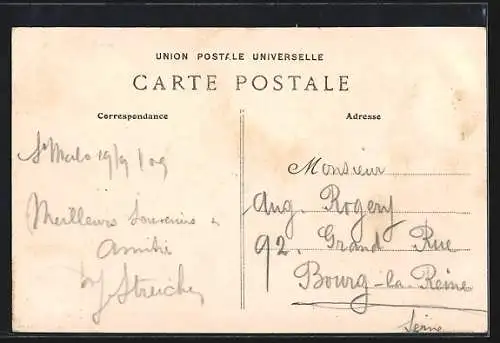 UNION POSTALE UNIVERSELLE
CARTE POSTALE
Correspondance
Adresse
St Malo 19/9/09
Meilleurs Souvenirs &
Amitié
Streicher
Monsieur
Aug. Rogery
92. Grand Rue
Bourg-la-Reine
Seine